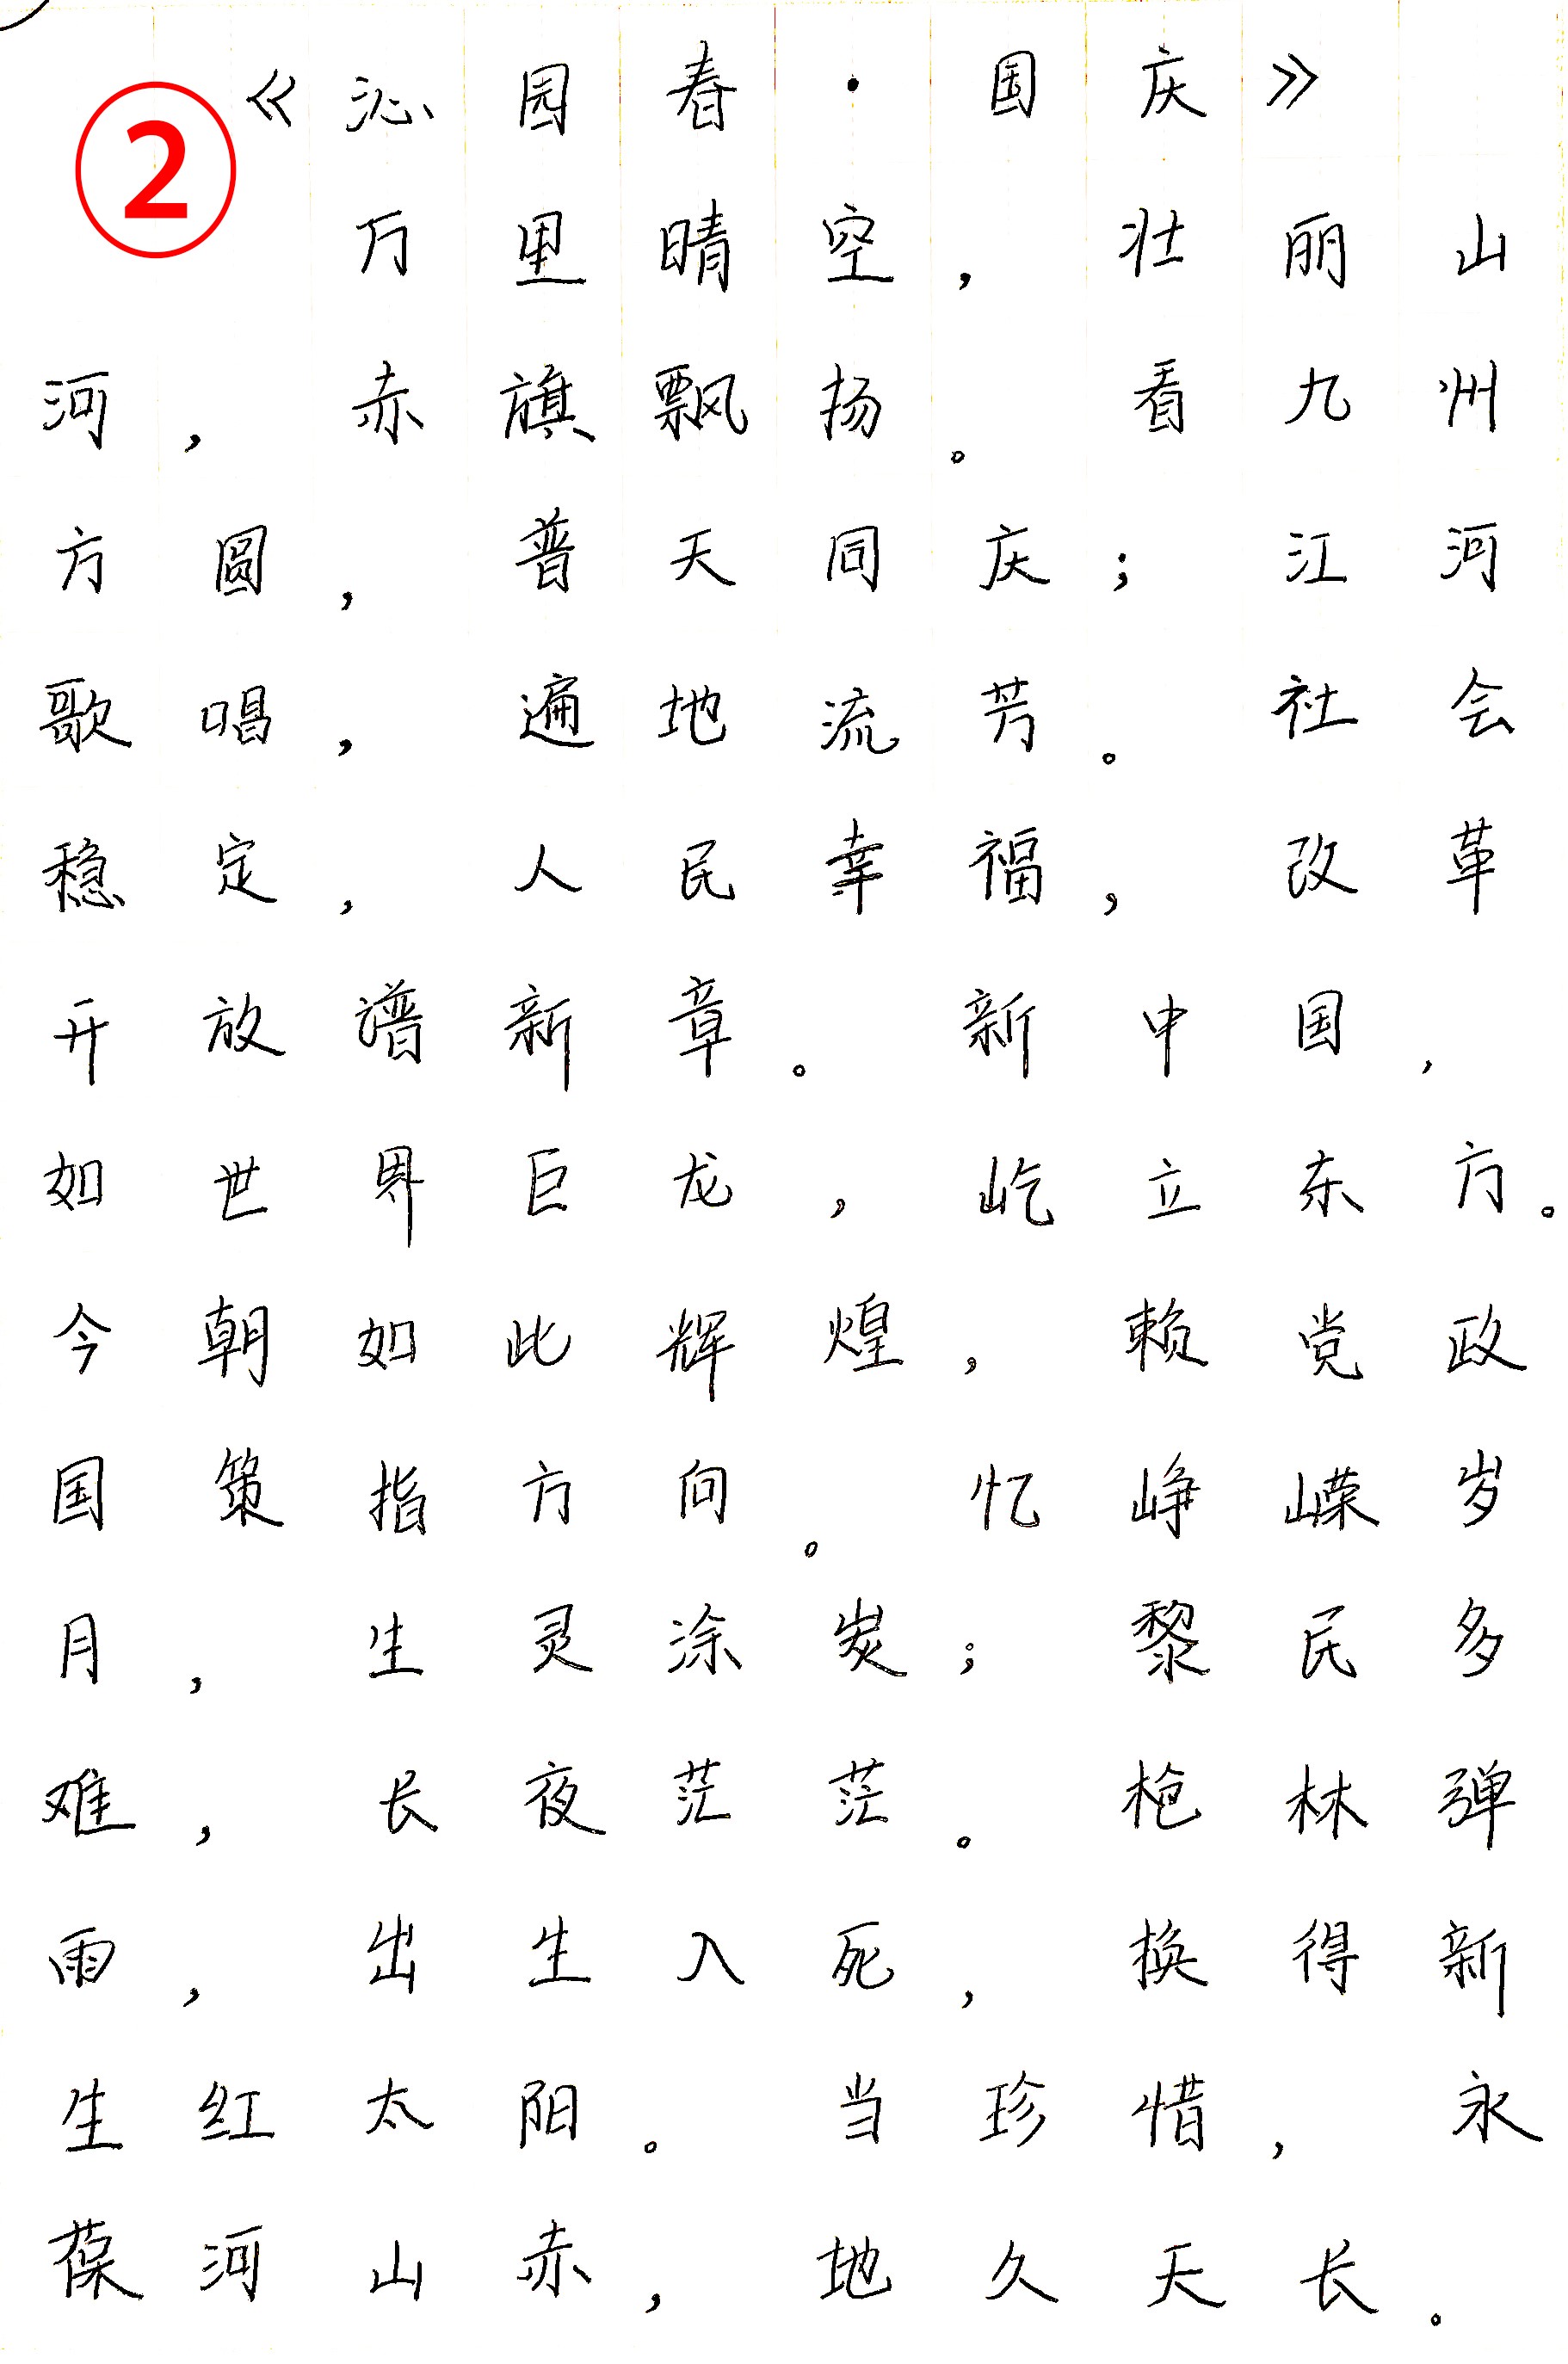 《沁园春·国庆》
②
万里晴空，壮丽山
河，赤旗飘扬。看九州
方圆，普天同庆；江河
歌唱，遍地流芳。社会
稳定，人民幸福，改革
开放谱新章。新中国，
如世界巨龙，屹立东方。
今朝如此辉煌，赖党政
国策指方向。忆峥嵘岁
月，生灵涂炭；黎民多
难，长夜茫茫。枪林弹
雨，出生入死，换得新
生红太阳。当珍惜，永
葆河山赤，地久天长。